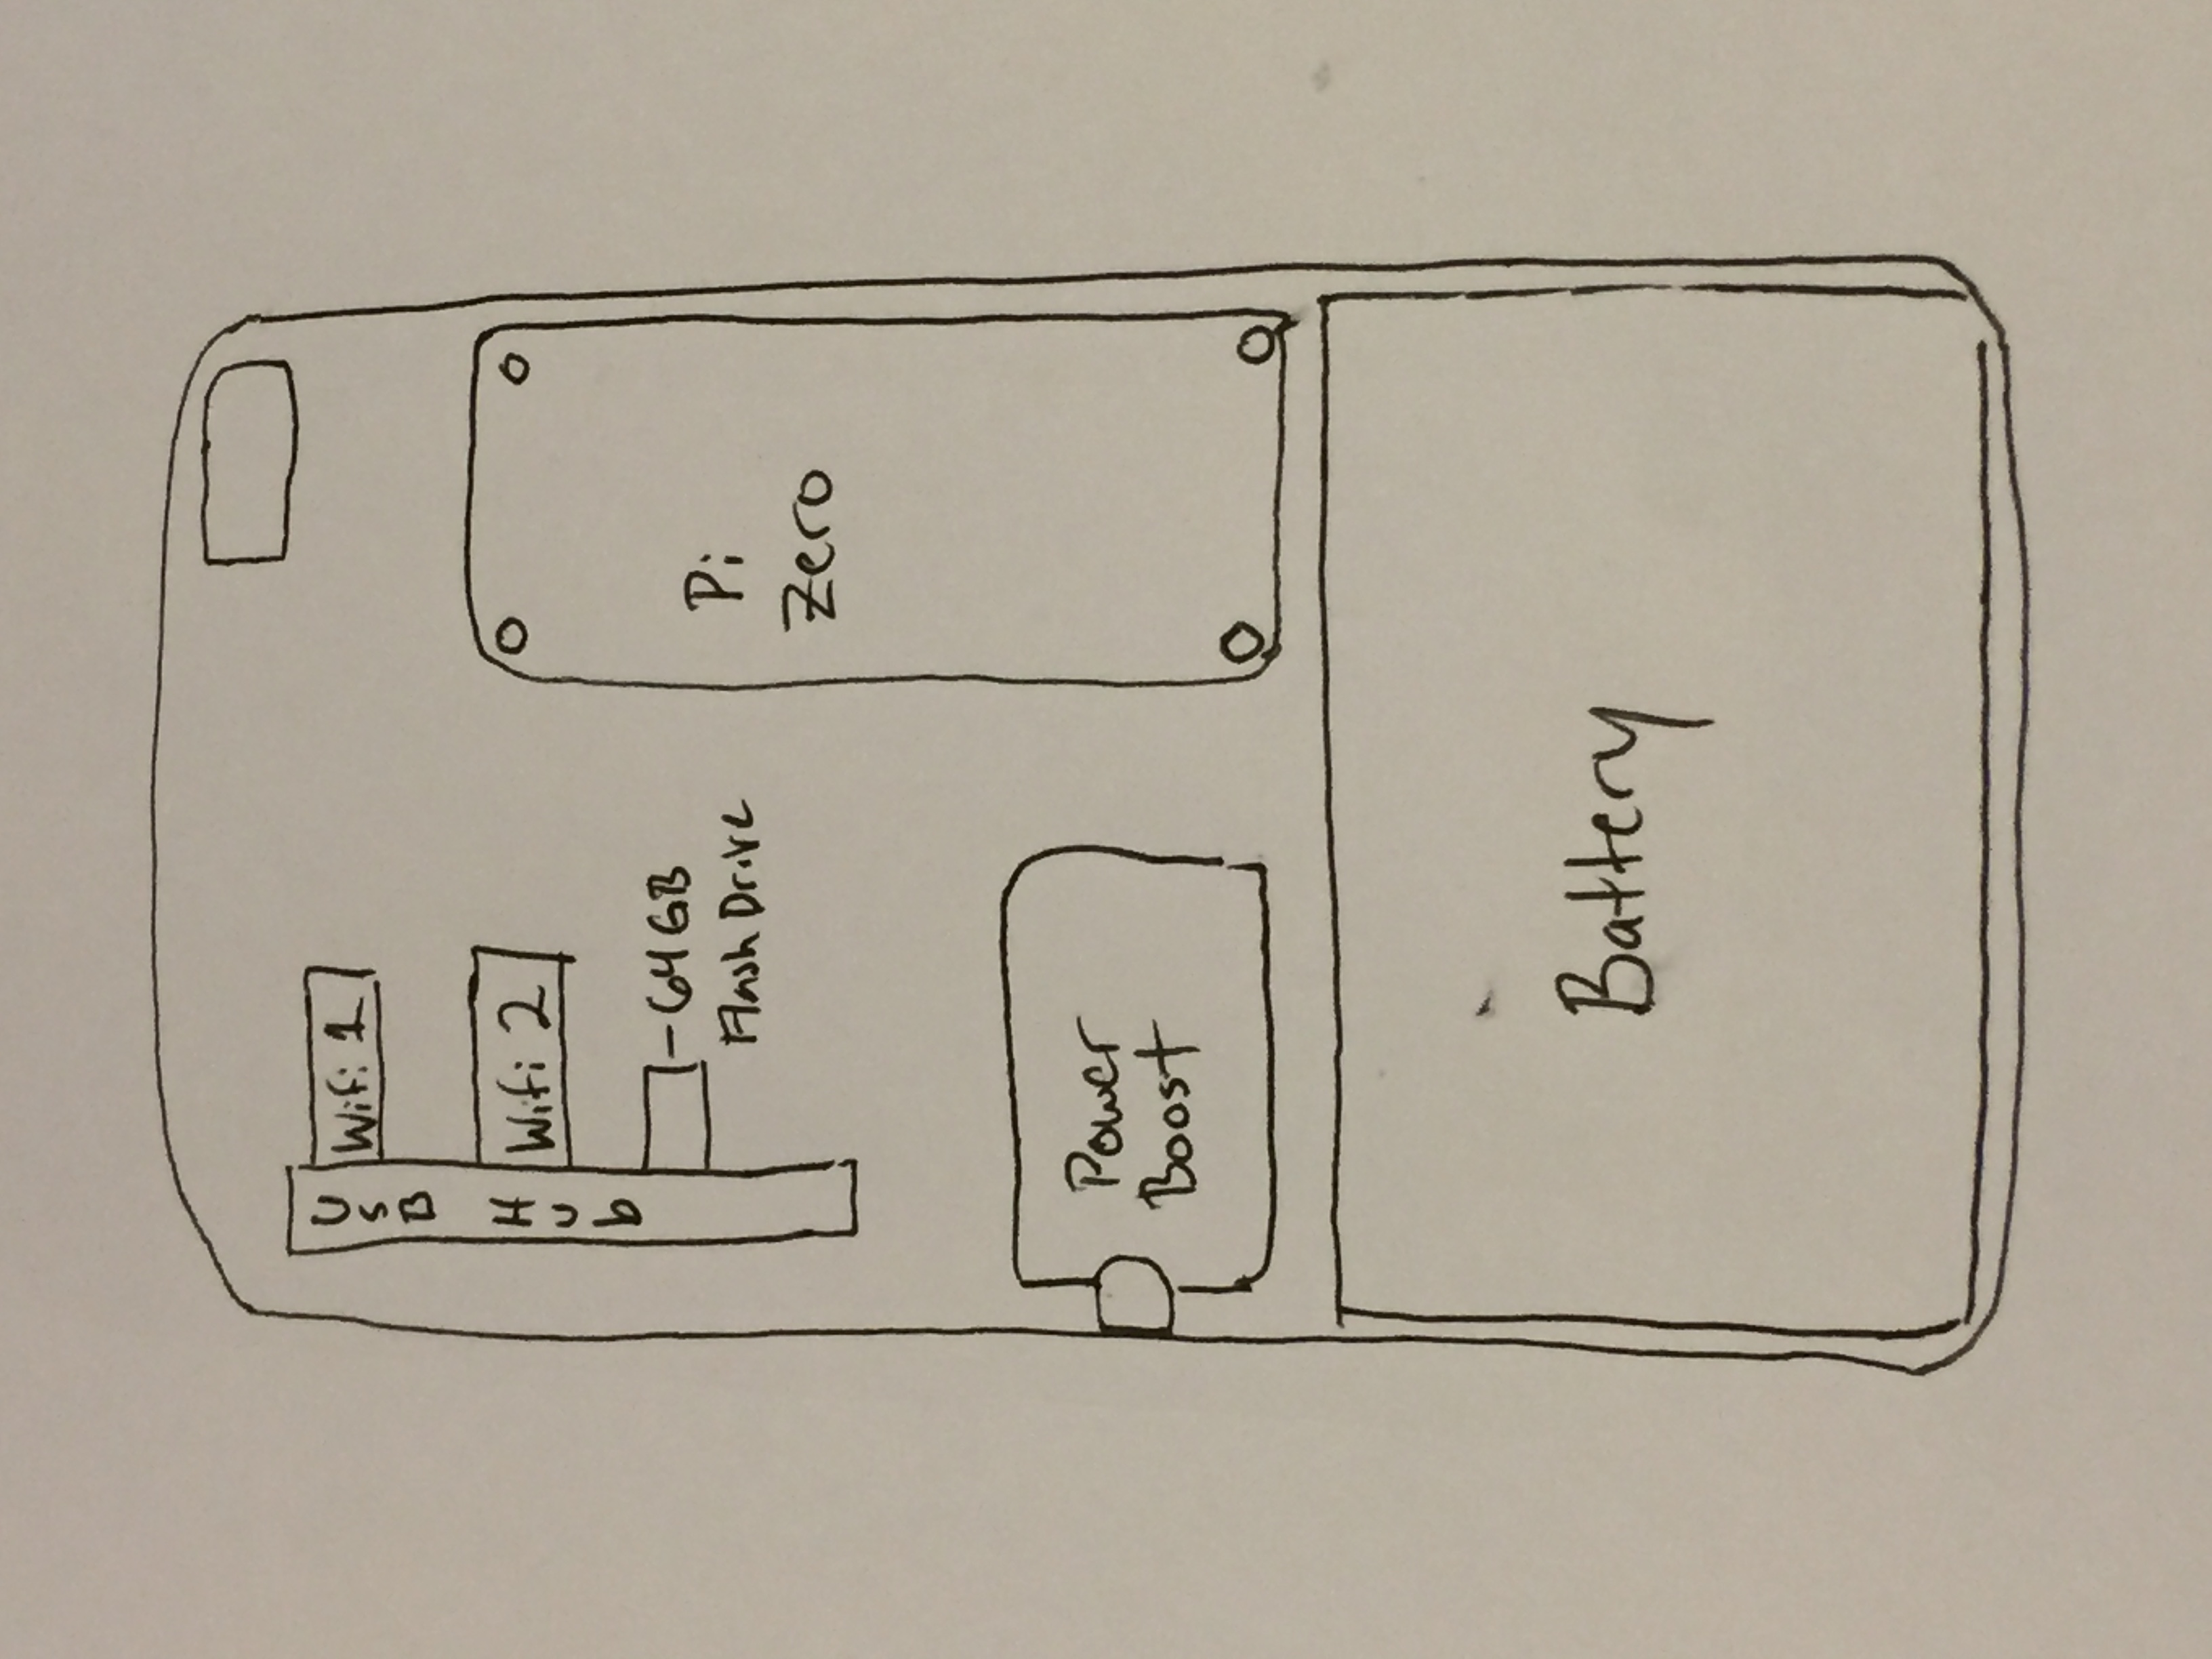 USB Hub
Wifi 1
Wifi 2
-64GB
Flash Drive
Pi
Zero
Power
Boost
Battery